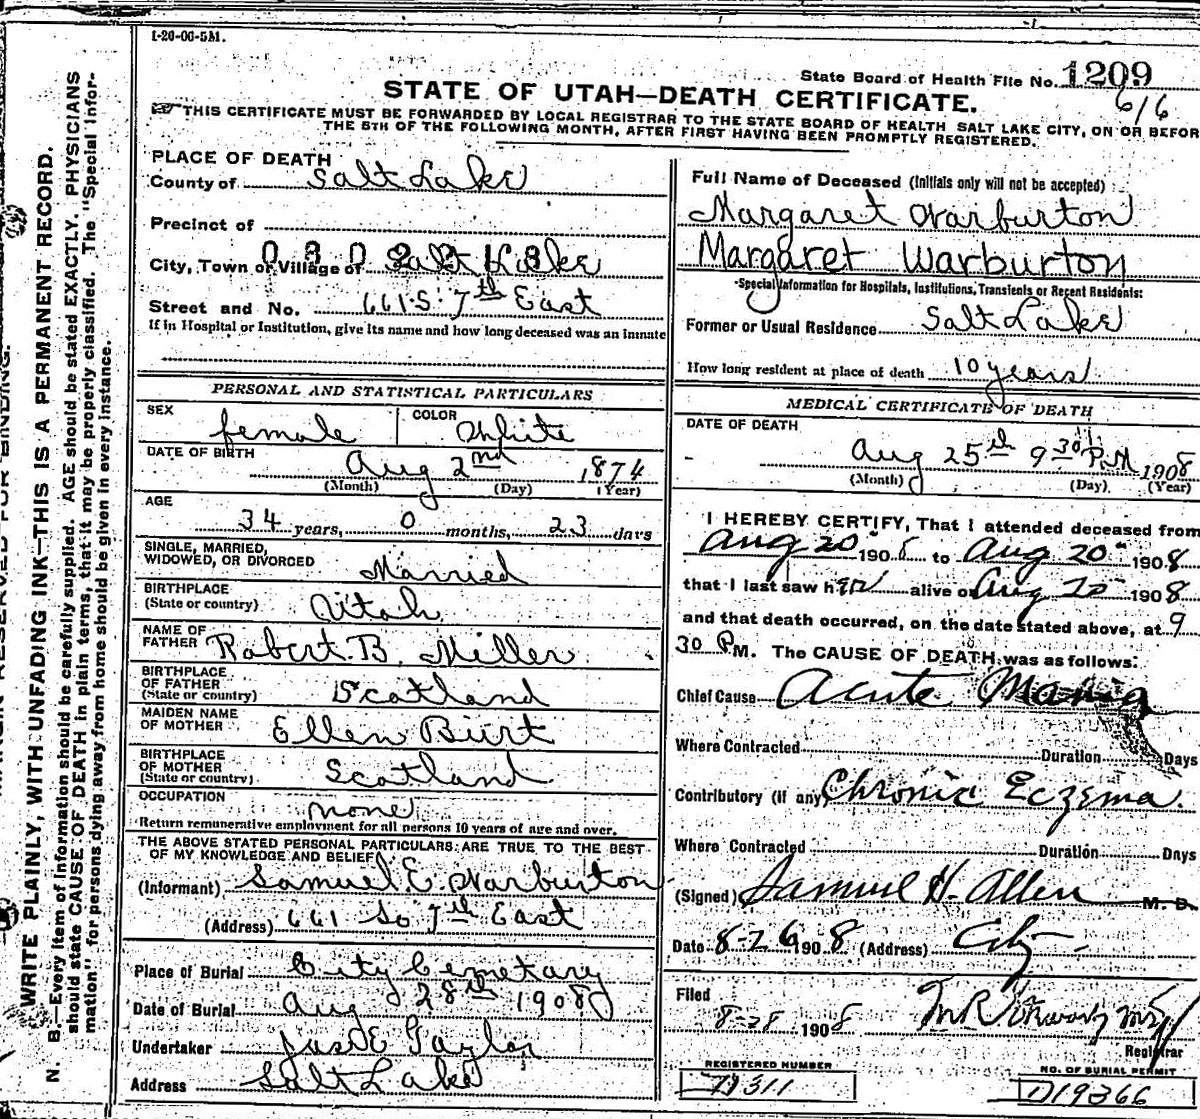 1-20-06-5M.
State Board of Health File No. 1209
6/6
STATE OF UTAH—DEATH CERTIFICATE.
THIS CERTIFICATE MUST BE FORWARDED BY LOCAL REGISTRAR TO THE STATE BOARD OF HEALTH SALT LAKE CITY, ON OR BEFOR
THE 8TH OF THE FOLLOWING MONTH, AFTER FIRST HAVING BEEN PROMPTLY REGISTERED.
WRITE PLAINLY, WITH UNFADING INK—THIS IS A PERMANENT RECORD.
N. B.—Every item of information should be carefully supplied. AGE should be stated EXACTLY. PHYSICIANS
should state CAUSE OF DEATH in plain terms, that it may be properly classified. The "Special Infor-
mation" for persons dying away from home should be given in every instance.
PLACE OF DEATH
County of Salt Lake
Precinct of
City, Town or Village of Salt Lake
Street and No. 661 S. 7th East
If in Hospital or Institution, give its name and how long deceased was an inmate
PERSONAL AND STATISTICAL PARTICULARS
SEX female COLOR White
DATE OF BIRTH
Aug 2nd 1874
(Month) (Day) (Year)
AGE
34 years, 0 months, 23 days
SINGLE, MARRIED,
WIDOWED, OR DIVORCED Married
BIRTHPLACE
(State or country) Utah
NAME OF
FATHER Robert B. Miller
BIRTHPLACE
OF FATHER
(State or country) Scotland
MAIDEN NAME
OF MOTHER Ellen Burt
BIRTHPLACE
OF MOTHER
(State or country) Scotland
OCCUPATION none
Return remunerative employment for all persons 10 years of age and over.
THE ABOVE STATED PERSONAL PARTICULARS ARE TRUE TO THE BEST
OF MY KNOWLEDGE AND BELIEF
(Informant) Samuel E. Warburton
(Address) 661 So 7th East
Place of Burial City Cemetary
Date of Burial Aug 28th 1908
Undertaker Jas E Taylor
Address Salt Lake
Full Name of Deceased (Initials only will not be accepted)
Margaret Warburton
Margaret Warburton
Special Information for Hospitals, Institutions, Transients or Recent Residents:
Former or Usual Residence Salt Lake
How long resident at place of death 10 years
MEDICAL CERTIFICATE OF DEATH
DATE OF DEATH
Aug 25th 9 30 P.M 1908
(Month) (Day) (Year)
I HEREBY CERTIFY, That I attended deceased from
Aug 20" 1908 to Aug 20" 1908
that I last saw her alive on Aug 20 1908
and that death occurred, on the date stated above, at 9
30 P M. The CAUSE OF DEATH was as follows:
Chief Cause Acute Mania
Where Contracted Duration Days
Contributory (if any) Chronic Eczema.
Where Contracted Duration Days
(Signed) Samuel H. Allen M. D.
Date 8-26 1908 (Address) City
Filed
8-28 1908
Registrar
REGISTERED NUMBER
NO. OF BURIAL PERMIT
D19366